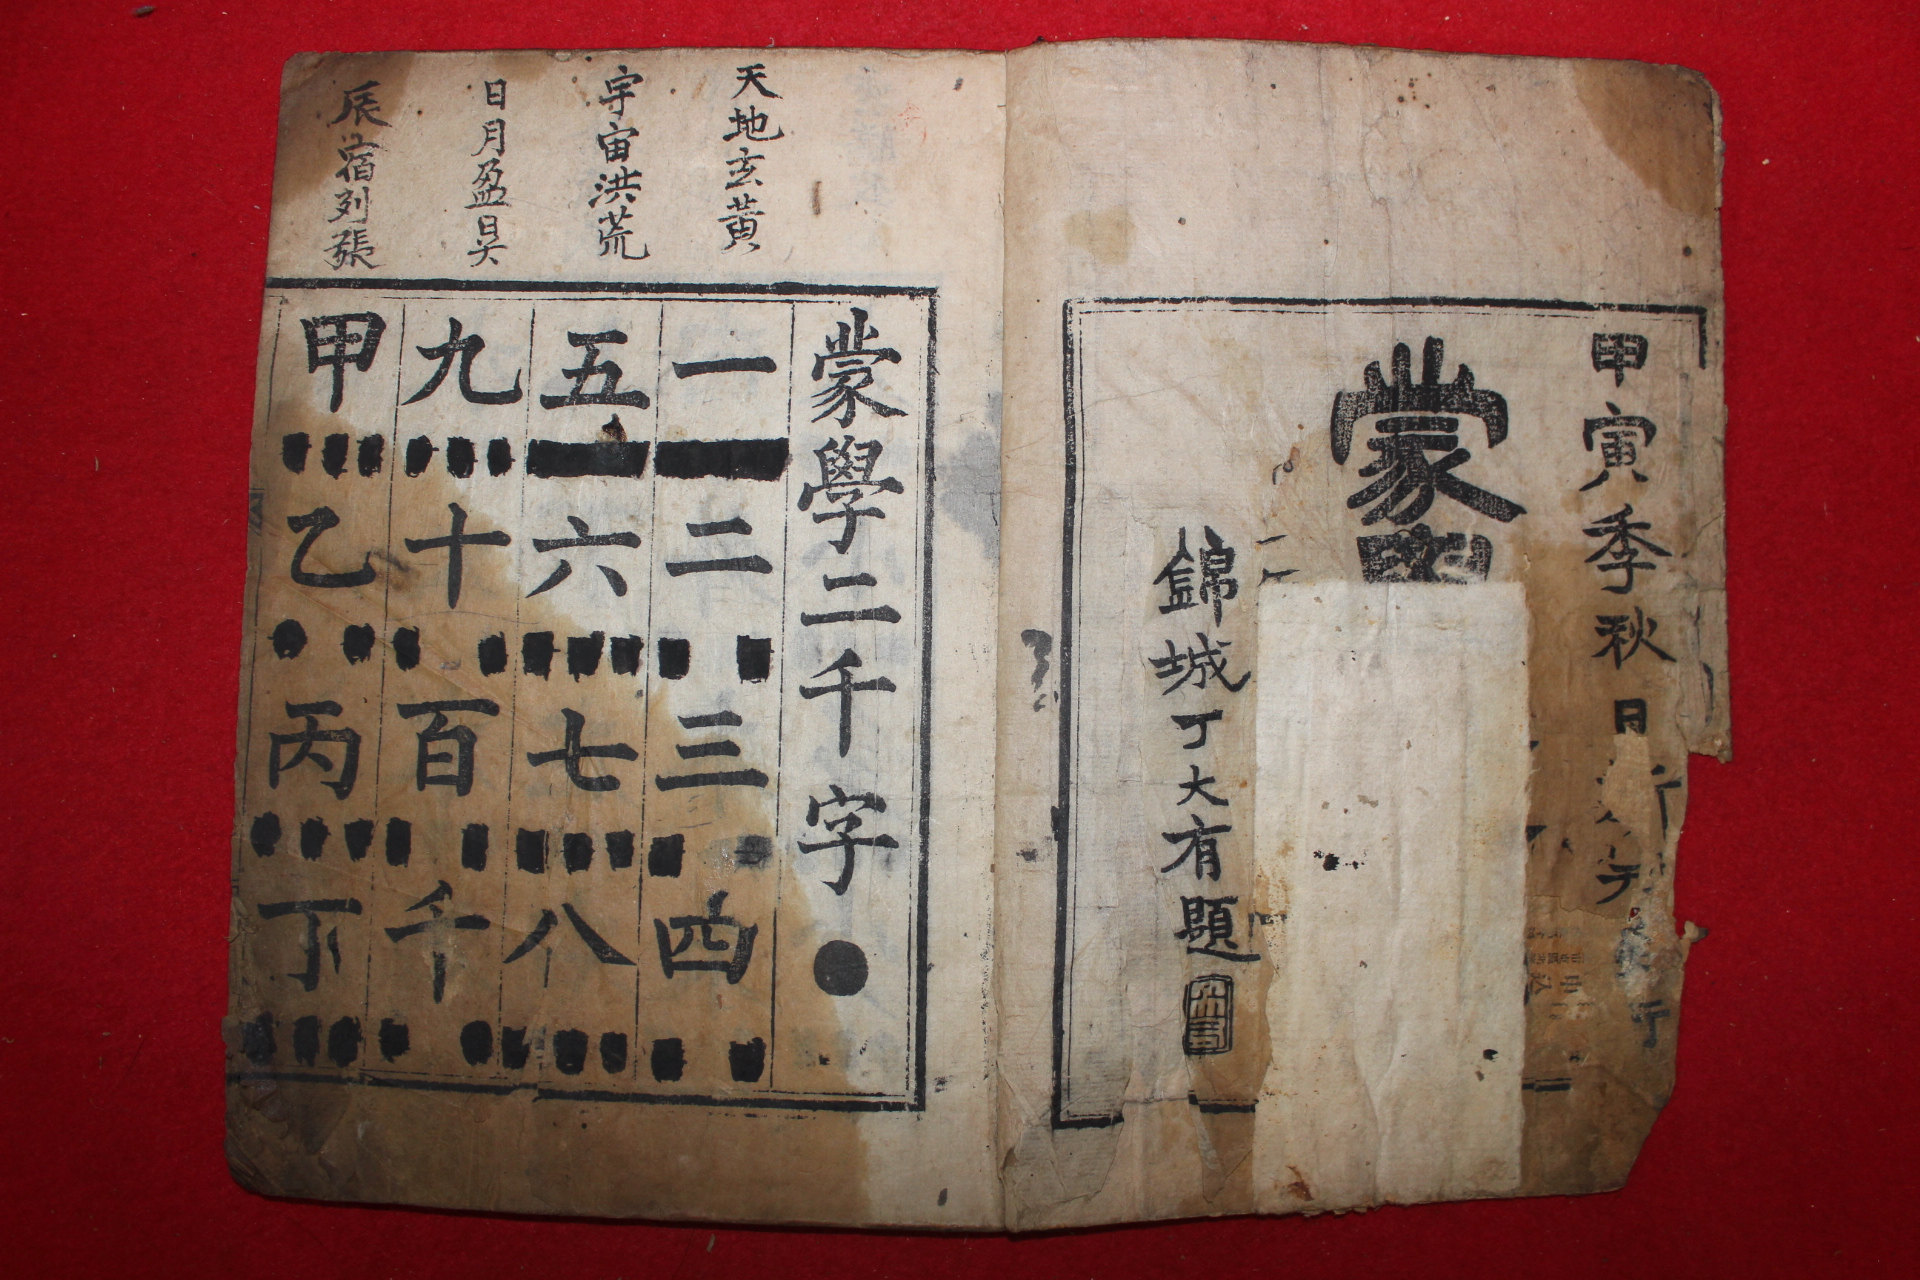 甲寅季秋日
蒙
錦城丁大有題
天地玄黃
宇宙洪荒
日月盈昃
辰宿列張
蒙學二千字
一二三四
五六七八
九十百千
甲乙丙丁